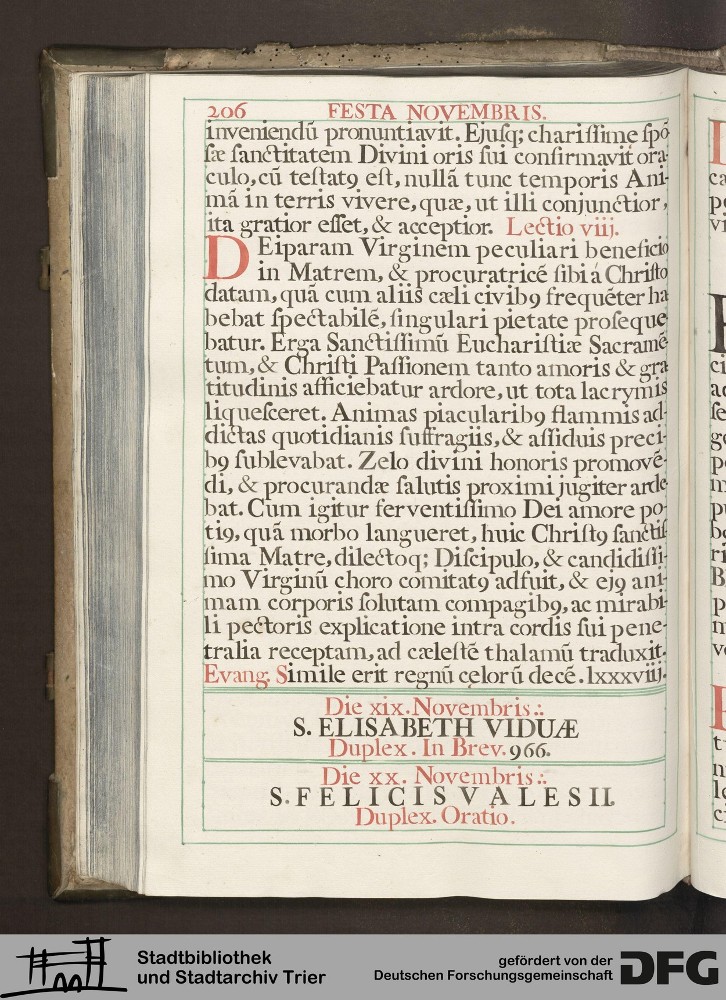 206 FESTA NOVEMBRIS.
inveniendū pronuntiavit. Ejuſq; chariſſime ſpō-
ſæ ſanctitatem Divini oris ſui confirmavit ora-
culo, cū teſtat9 eſt, nullā tunc temporis Ani-
mā in terris vivere, quæ, ut illi conjunctior,
ita gratior eſſet, & acceptior. Lectio viij.
DEiparam Virginem peculiari beneficio
in Matrem, & procuratricē ſibi á Chriſto
datam, quā cum aliis cæli civib9 frequēter ha-
bebat ſpectabilē, ſingulari pietate proſeque-
batur. Erga Sanctiſſimū Euchariſtiæ Sacramē-
tum, & Chriſti Paſſionem tanto amoris & gra-
titudinis afficiebatur ardore, ut tota lacrymis
liqueſceret. Animas piacularib9 flammis ad-
dictas quotidianis ſuffragiis, & aſſiduis preci-
b9 ſublevabat. Zelo divini honoris promovē-
di, & procurandæ ſalutis proximi jugiter arde-
bat. Cum igitur ferventiſſimo Dei amore po-
ti9, quā morbo langueret, huic Chriſt9 ſanctiſ-
ſima Matre, dilectoq; Diſcipulo, & candidiſſi-
mo Virginū choro comitat9 adfuit, & ej9 ani-
mam corporis ſolutam compagib9, ac mirabi-
li pectoris explicatione intra cordis ſui pene-
tralia receptam, ad cæleſtē thalamū traduxit.
Evang. Simile erit regnū cęlorū decē. lxxxviij.
Die xix. Novembris.:.
S. ELISABETH VIDUÆ
Duplex. In Brev. 966.
Die xx. Novembris.:.
S. FELICIS VALESII.
Duplex. Oratio.
Stadtbibliothek
und Stadtarchiv Trier
gefördert von der
Deutschen Forschungsgemeinschaft
DFG